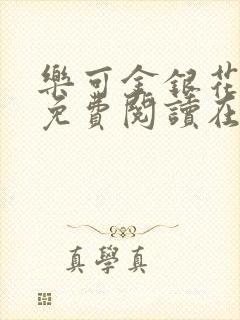 樂可金銀花
免費閱讀在
真學真